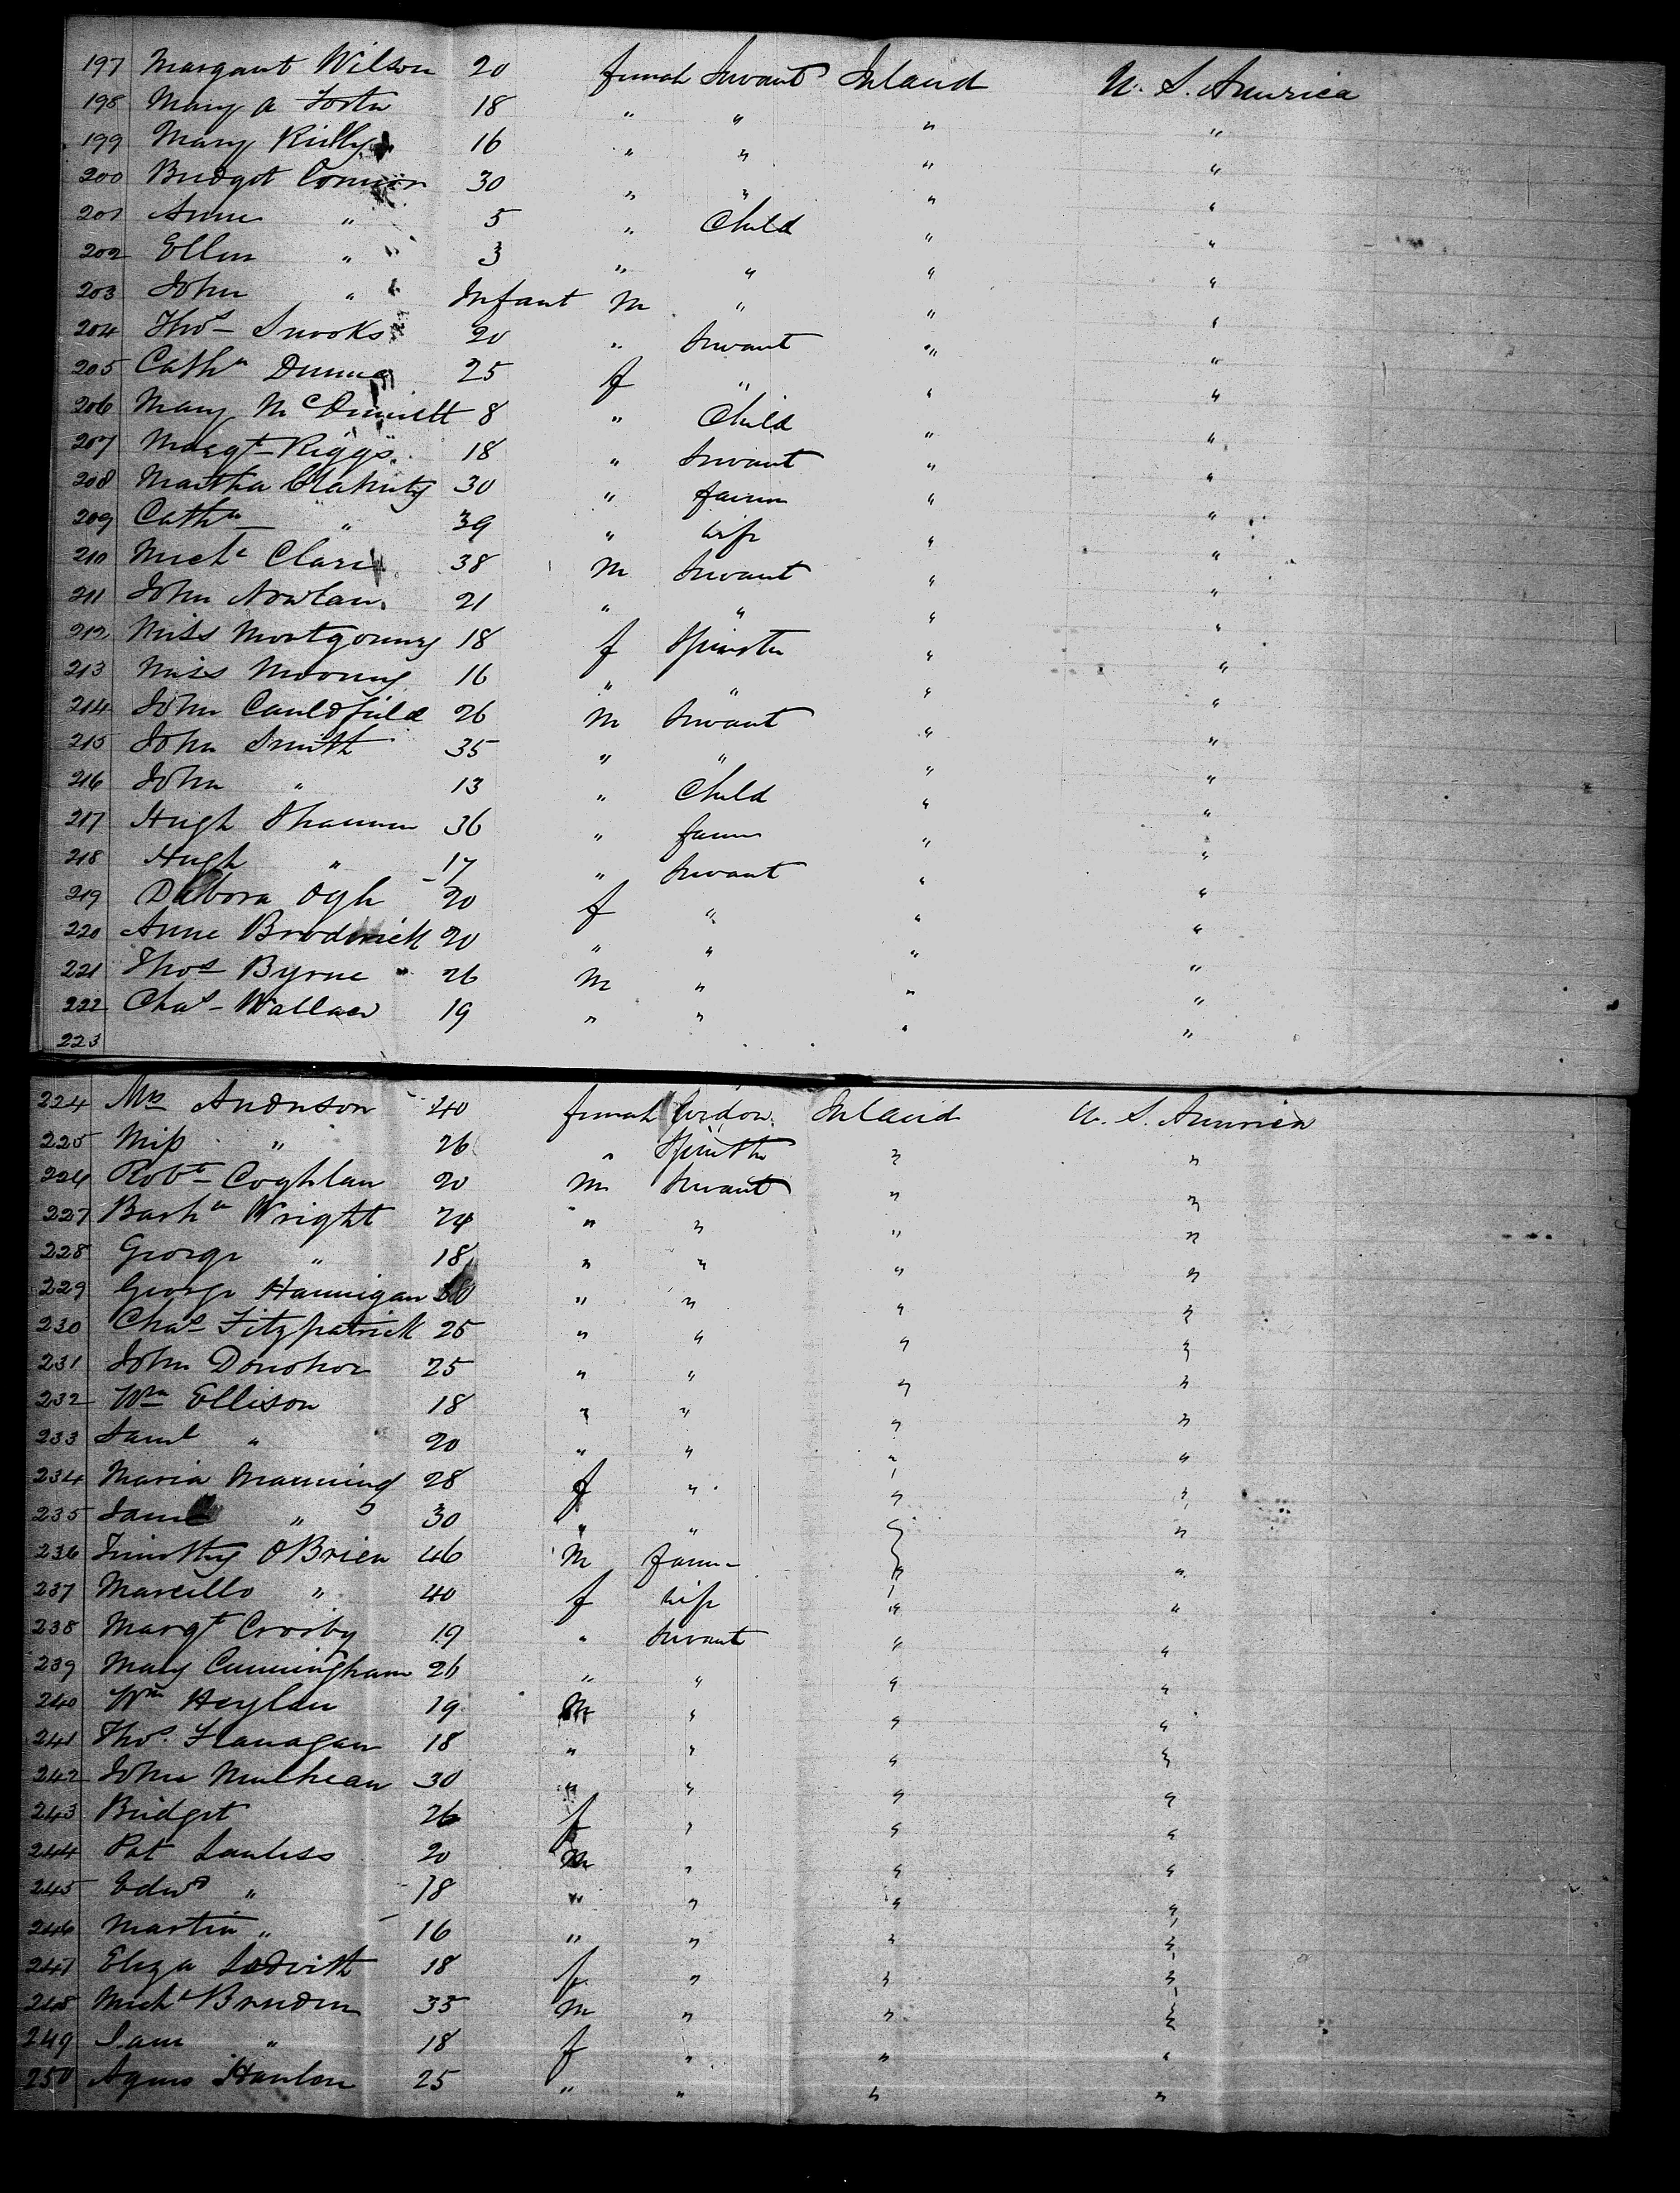 197 Margaret Wilson 20 female Servant Ireland U. S. America
198 Mary A Foster 18 " " " "
199 Mary Reilly 16 " " " "
200 Bridget Connor 30 " " " "
201 Anne " 5 " Child " "
202 Ellen " 3 " " " "
203 John " Infant M " " "
204 Thos Snooks 20 " Servant " "
205 Cathn Dunne 25 f " " "
206 Mary McDermott 8 " Child " "
207 Margt Riggs 18 " Servant " "
208 Martha Claherty 30 " farmer " "
209 Cathn " 39 " wife " "
210 Michl Clare 38 M Servant " "
211 John Nowlan 21 " " " "
212 Miss Montgomery 18 f Spinster " "
213 Miss Mooney 16 " " " "
214 John Cauldfield 26 M Servant " "
215 John Smith 35 " " " "
216 John " 13 " Child " "
217 Hugh Shannon 36 " farmer " "
218 Hugh " 17 " Servant " "
219 Debora Ogle 20 f " " "
220 Anne Broderick 20 " " " "
221 Thos Byrne 26 M " " "
222 Chas Wallace 19 " " " "
223
224 Mrs Anderson 40 female Widow Ireland U. S. America
225 Miss " 26 " Spinster " "
226 Robt Coghlan 20 M Servant " "
227 Barthw Wright 24 " " " "
228 George " 18 " " " "
229 George Hannigan " " " "
230 Chas Fitzpatrick 25 " " " "
231 John Donohoe 25 " " " "
232 Wm Ellison 18 " " " "
233 Saml " 20 " " " "
234 Maria Manning 28 f " " "
235 Jane " 30 " " " "
236 Timothy OBrien 46 M farmer " "
237 Marcillo " 40 f wife " "
238 Margt Crosby 19 " Servant " "
239 Mary Cunningham 26 " " " "
240 Wm Heylan 19 M " " "
241 Thos Flanagan 18 " " " "
242 John Mulhean 30 " " " "
243 Bridget 26 f " " "
244 Pat Lawless 20 M " " "
245 Edwd " 18 " " " "
246 Martin " 16 " " " "
247 Eliza Ledwith 18 f " " "
248 Michl Breeden 35 M " " "
249 Jane " 18 f " " "
250 Agnes Hanlon 25 " " " "